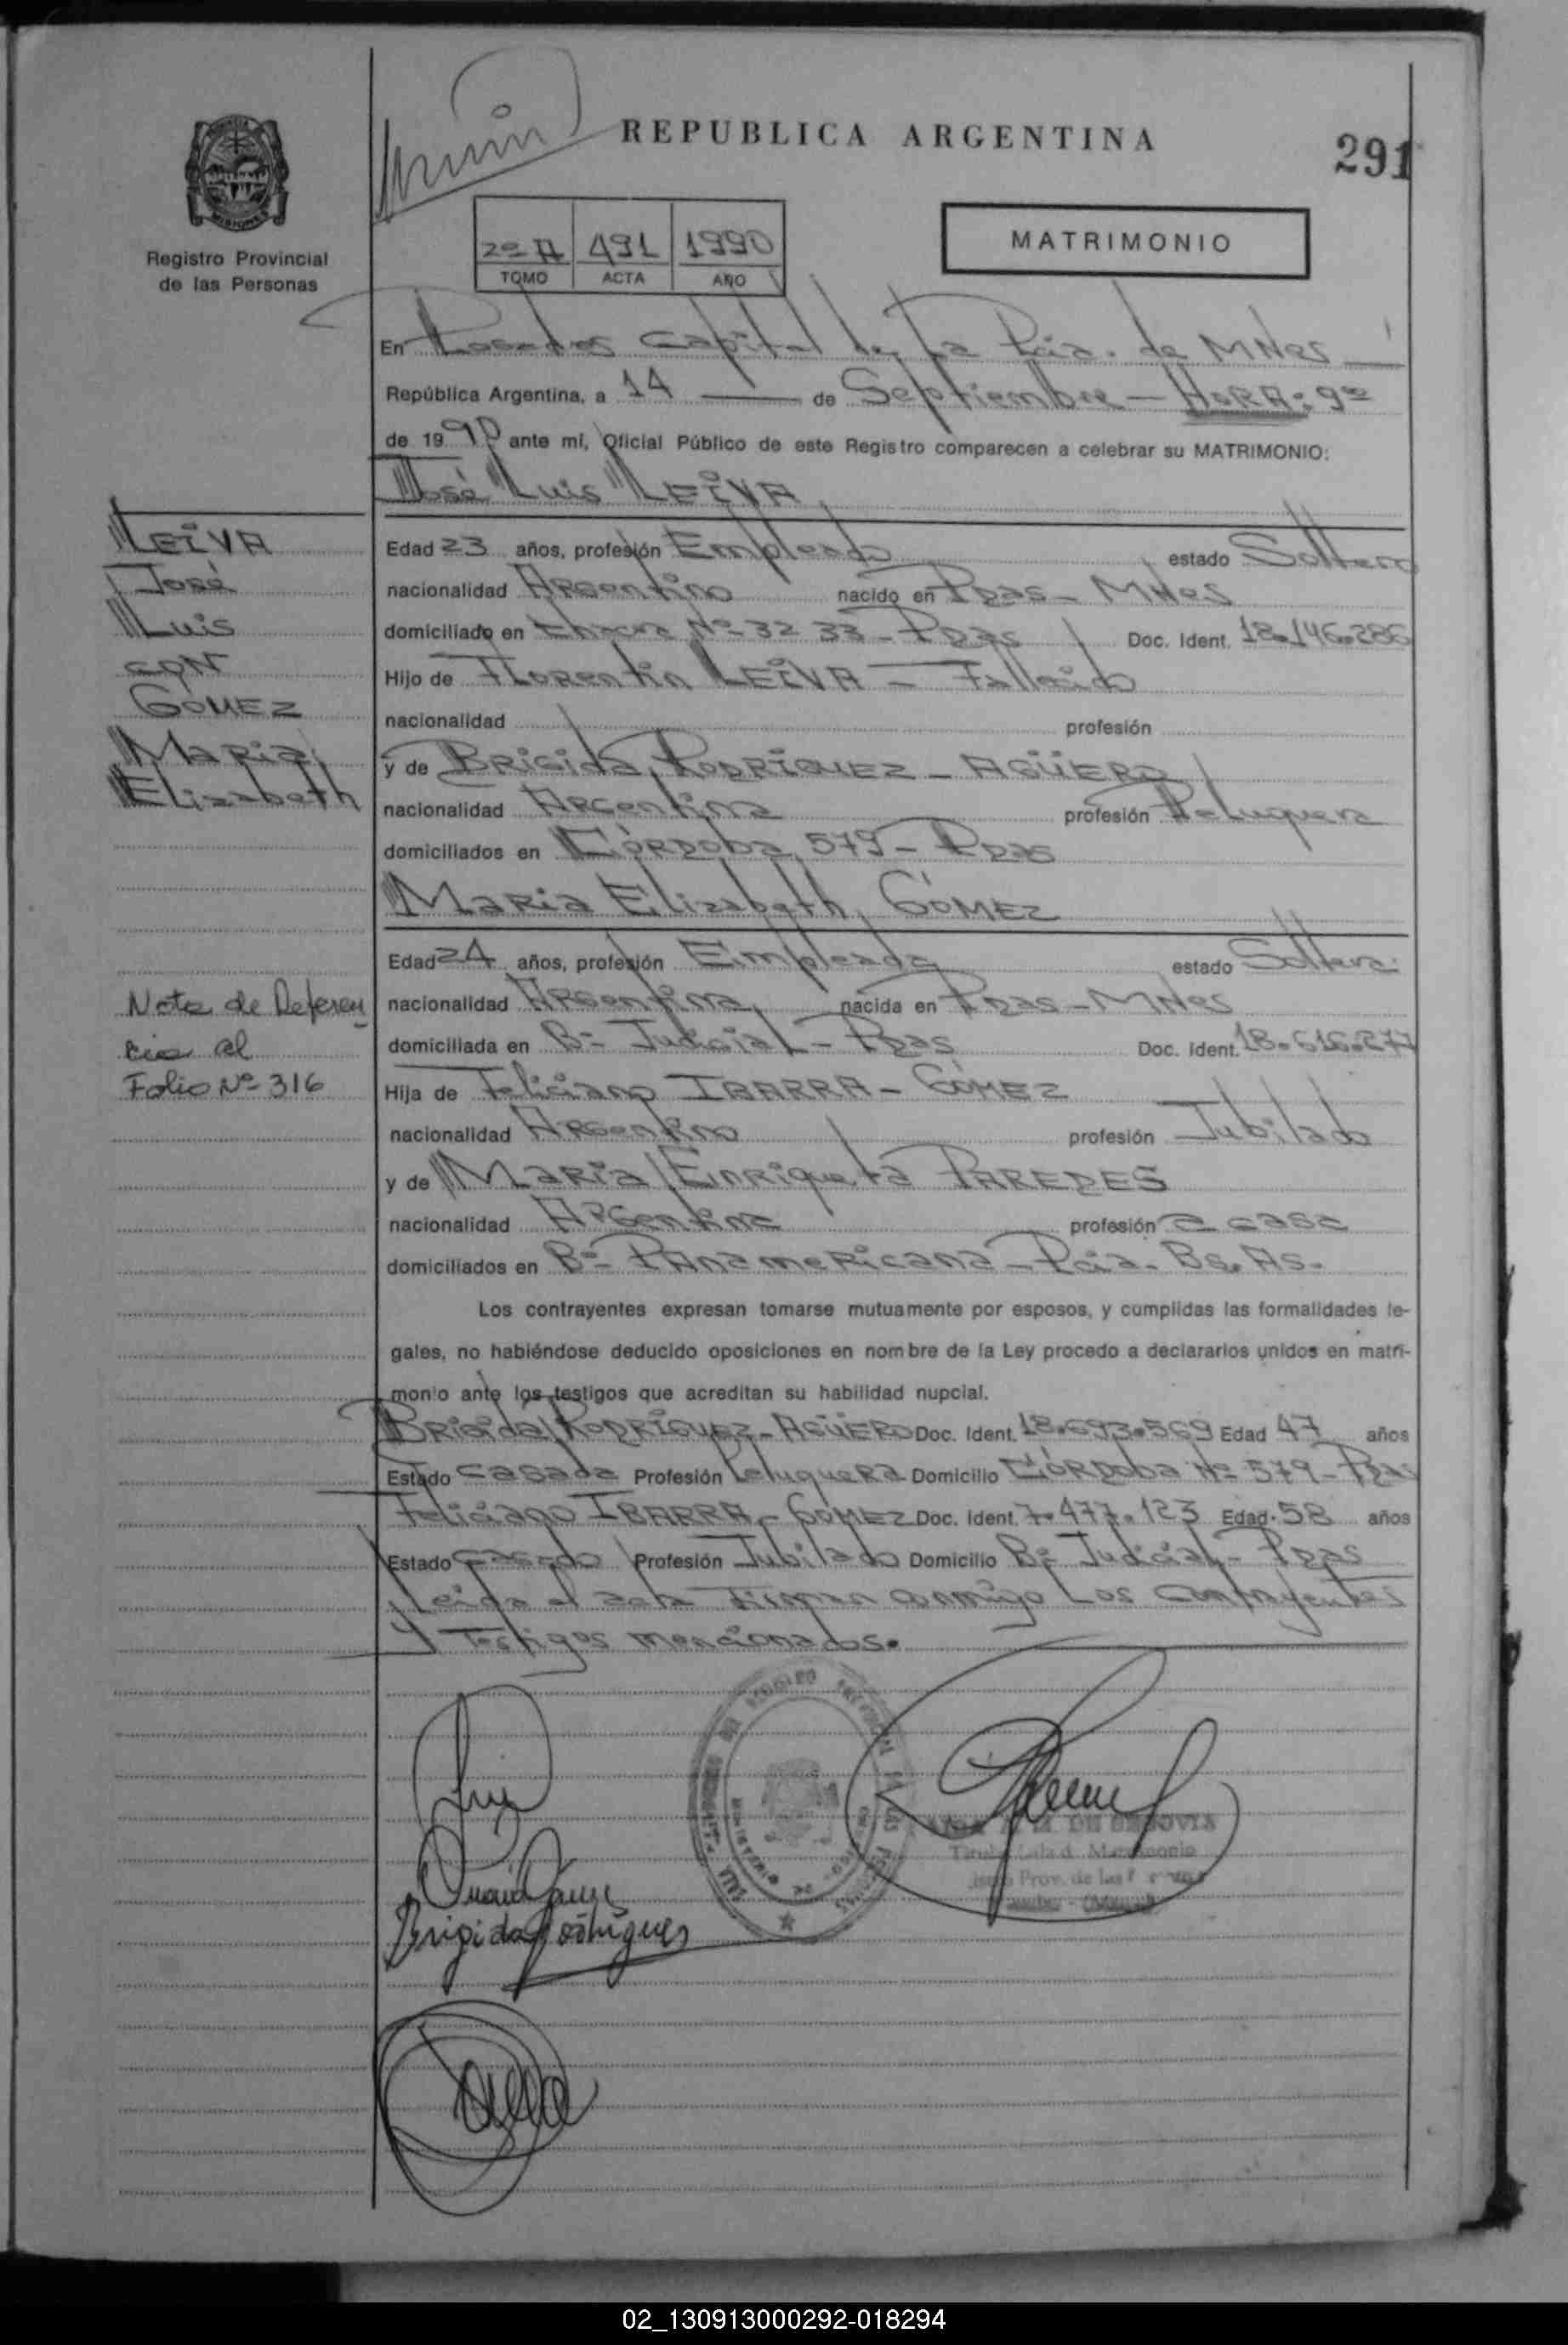 REPUBLICA ARGENTINA
291
Registro Provincial
de las Personas
2º A 491 1990
TOMO ACTA AÑO
MATRIMONIO
En Posadas Capital de la Pcia. de MNes
República Argentina, a 14 de Septiembre - HORA: 9ºº
de 1990 ante mí, Oficial Público de este Registro comparecen a celebrar su MATRIMONIO:
José Luis LEIVA
LEIVA
José
Luis
con
GOMEZ
Maria
Elizabeth
Edad 23 años, profesión Empleado estado Soltero
nacionalidad Argentino nacido en Pdas - MNes
domiciliado en Chacra Nº 32 33 - Pdas Doc. Ident. 18.146.286
Hijo de Florentin LEIVA - Fallecido
nacionalidad profesión
y de BRIGIDA RODRÍGUEZ - AGÜERO
nacionalidad Argentina profesión Peluquera
domiciliados en Córdoba 579 - Pdas
Maria Elizabeth GÓMEZ
Edad 24 años, profesión Empleada estado Soltera
nacionalidad Argentina nacida en Pdas - MNes
domiciliada en Bº Judicial - Pdas Doc. Ident. 18.616.277
Hija de Feliciano IBARRA - GÓMEZ
nacionalidad Argentino profesión Jubilado
y de Maria Enriqueta PAREDES
nacionalidad Argentina profesión a casa
domiciliados en Bº Panamericana - Pcia. Bs. As.
Nota de Referen
cia al
Folio Nº 316
Los contrayentes expresan tomarse mutuamente por esposos, y cumplidas las formalidades le-
gales, no habiéndose deducido oposiciones en nombre de la Ley procedo a declararlos unidos en matri-
monio ante los testigos que acreditan su habilidad nupcial.
Brigida RODRÍGUEZ - AGÜERO Doc. Ident. 18.693.569 Edad 47 años
Estado Casada Profesión Peluquera Domicilio Córdoba Nº 579 - Pdas
Feliciano IBARRA - GÓMEZ Doc. Ident. 7.477.123 Edad 58 años
Estado Casado Profesión Jubilado Domicilio Bº Judicial - Pdas
Leida el acta Firman conmigo Los Contrayentes
y Testigos mencionados.
DE SEGOVIA
Prov. de las
Brigida Rodrigues
02_130913000292-018294